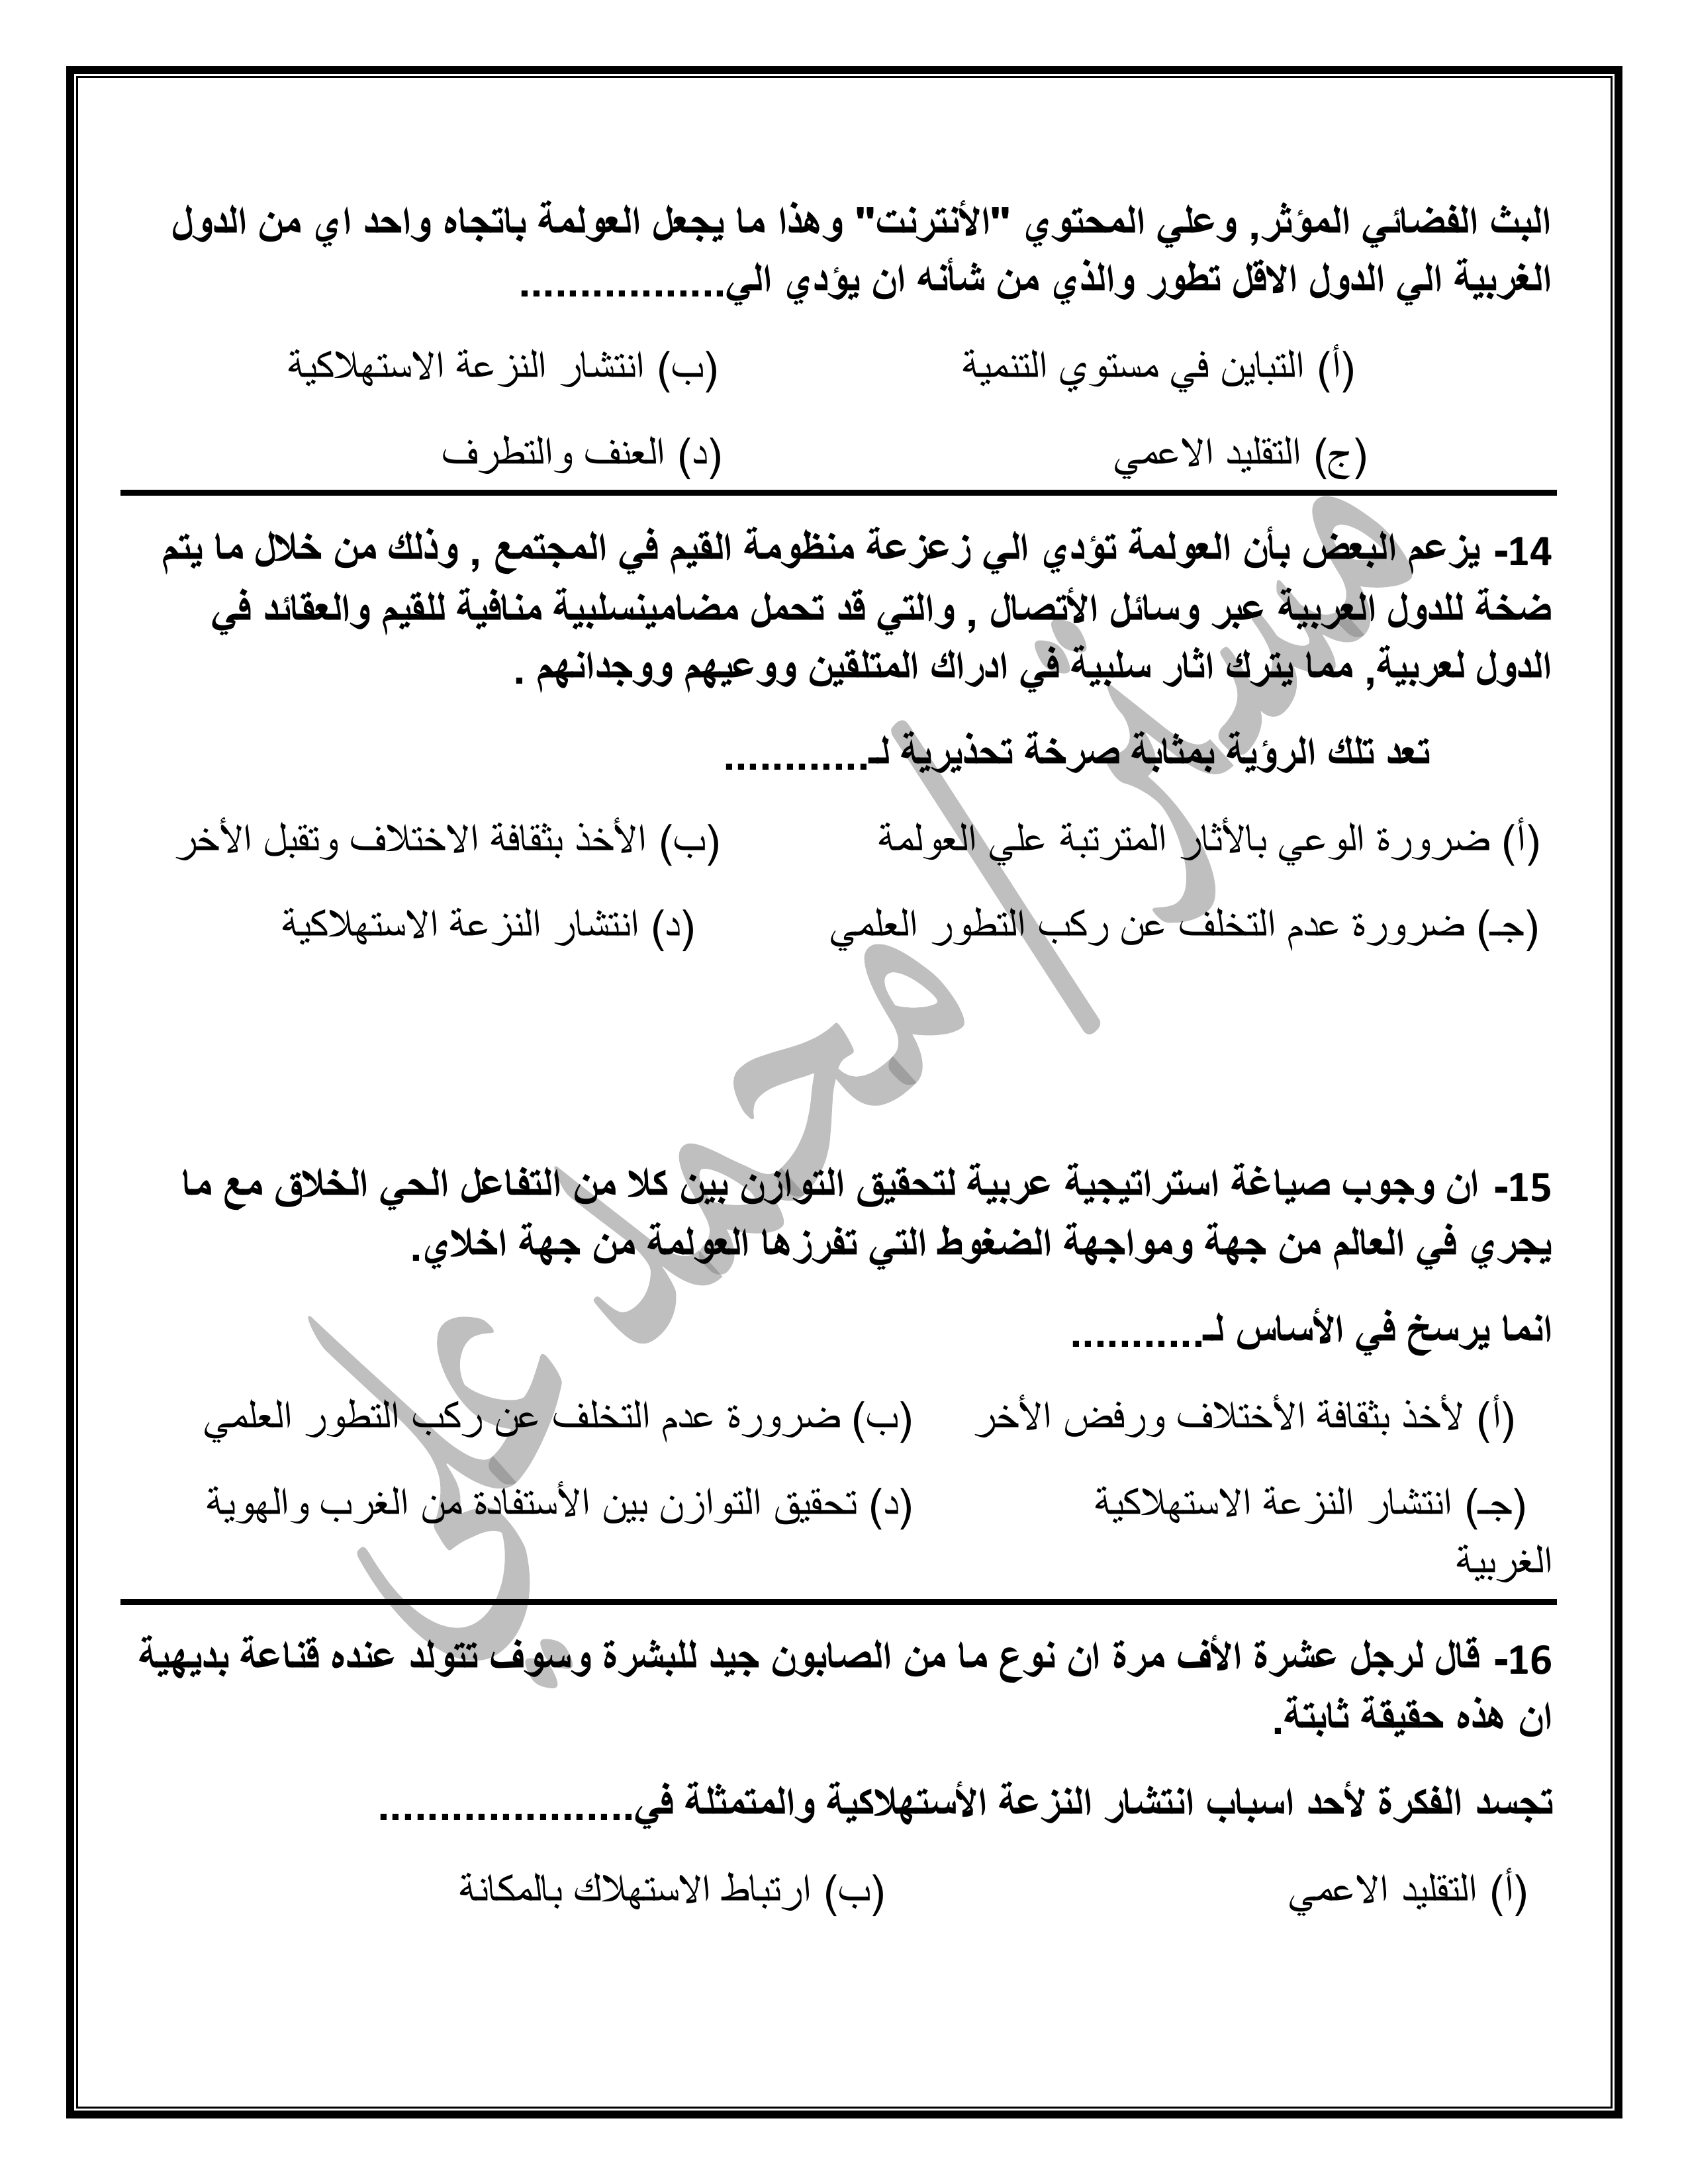 البث الفضائي المؤثر, وعلي المحتوي "الأنترنت" وهذا ما يجعل العولمة باتجاه واحد اي من الدول
الغربية الي الدول الاقل تطور والذي من شأنه ان يؤدي الي.................
(أ) التباين في مستوي التنمية (ب) انتشار النزعة الاستهلاكية
(ج) التقليد الاعمي (د) العنف والتطرف
14- يزعم البعض بأن العولمة تؤدي الي زعزعة منظومة القيم في المجتمع , وذلك من خلال ما يتم
ضخة للدول العربية عبر وسائل الأتصال , والتي قد تحمل مضامينسلبية منافية للقيم والعقائد في
الدول لعربية, مما يترك اثار سلبية في ادراك المتلقين ووعيهم ووجدانهم .
تعد تلك الرؤية بمثابة صرخة تحذيرية لـ............
(أ) ضرورة الوعي بالأثار المترتبة علي العولمة (ب) الأخذ بثقافة الاختلاف وتقبل الأخر
(جـ) ضرورة عدم التخلف عن ركب التطور العلمي (د) انتشار النزعة الاستهلاكية
15- ان وجوب صياغة استراتيجية عربية لتحقيق التوازن بين كلا من التفاعل الحي الخلاق مع ما
يجري في العالم من جهة ومواجهة الضغوط التي تفرزها العولمة من جهة اخلاي.
انما يرسخ في الأساس لـ...........
(أ) لأخذ بثقافة الأختلاف ورفض الأخر (ب) ضرورة عدم التخلف عن ركب التطور العلمي
(جـ) انتشار النزعة الاستهلاكية (د) تحقيق التوازن بين الأستفادة من الغرب والهوية
الغربية
16- قال لرجل عشرة الأف مرة ان نوع ما من الصابون جيد للبشرة وسوف تتولد عنده قناعة بديهية
ان هذه حقيقة ثابتة.
تجسد الفكرة لأحد اسباب انتشار النزعة الأستهلاكية والمتمثلة في.....................
(أ) التقليد الاعمي (ب) ارتباط الاستهلاك بالمكانة
مستر/محمد علي